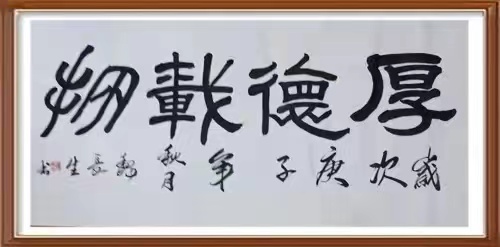 厚德載物
歲次庚子年秋月
長生書